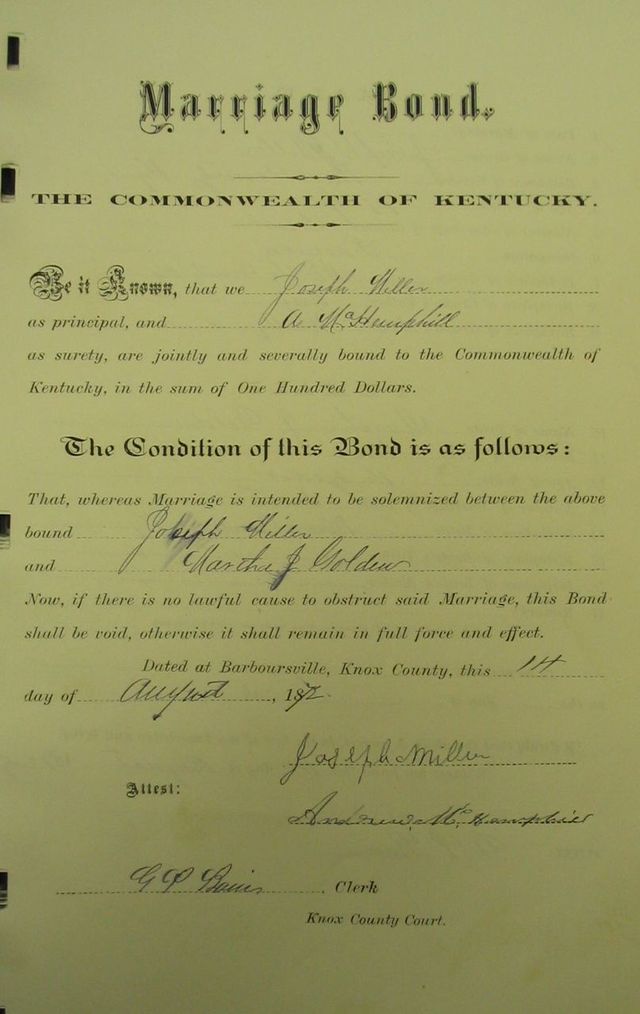 Marriage Bond.
THE COMMONWEALTH OF KENTUCKY.
Be it Known, that we Joseph Miller
as principal, and A McHemphill
as surety, are jointly and severally bound to the Commonwealth of
Kentucky, in the sum of One Hundred Dollars.
The Condition of this Bond is as follows:
That, whereas Marriage is intended to be solemnized between the above
bound Joseph Miller
and Martha J Golden
Now, if there is no lawful cause to obstruct said Marriage, this Bond
shall be void, otherwise it shall remain in full force and effect.
Dated at Barboursville, Knox County, this 14
day of August, 187
Joseph Miller
Attest:
Andrew Mc Hemphill
G P Clerk
Knox County Court.